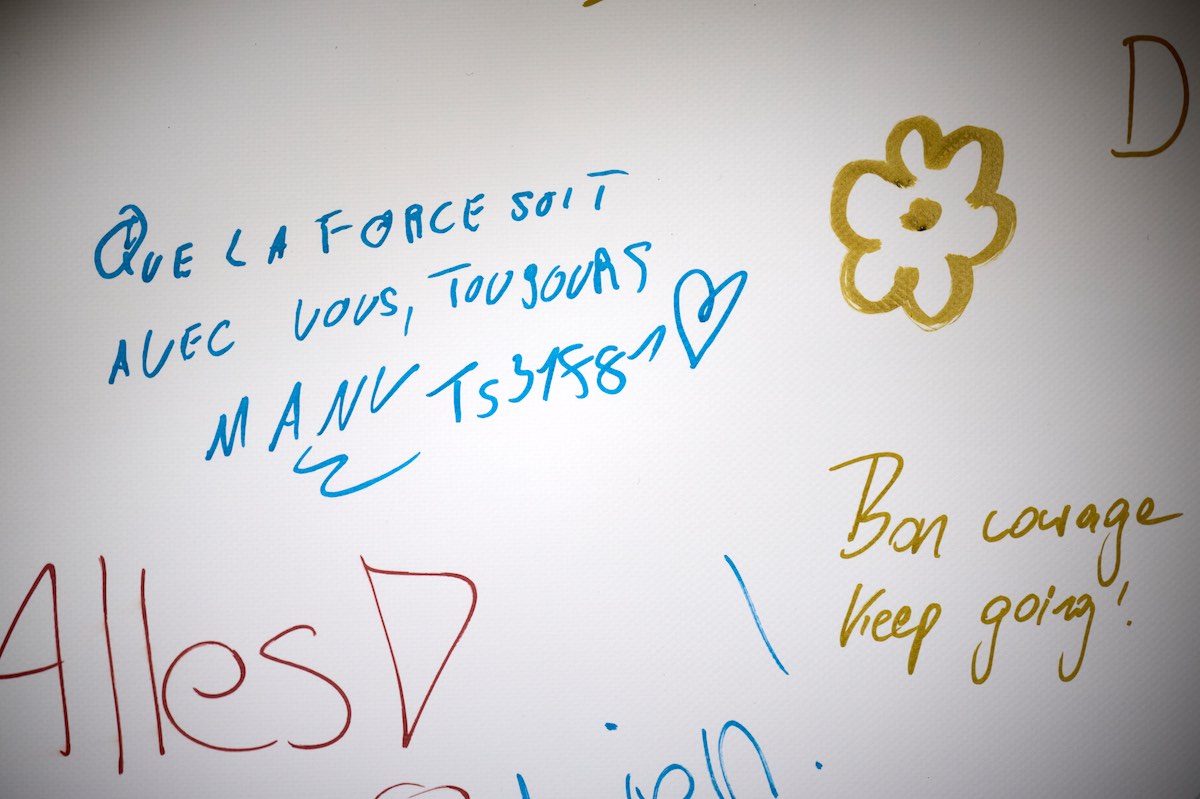 QUE LA FORCE SOIT
AVEC VOUS, TOUJOURS
MANU TS31581
D
Bon courage
Keep going!
Alles D